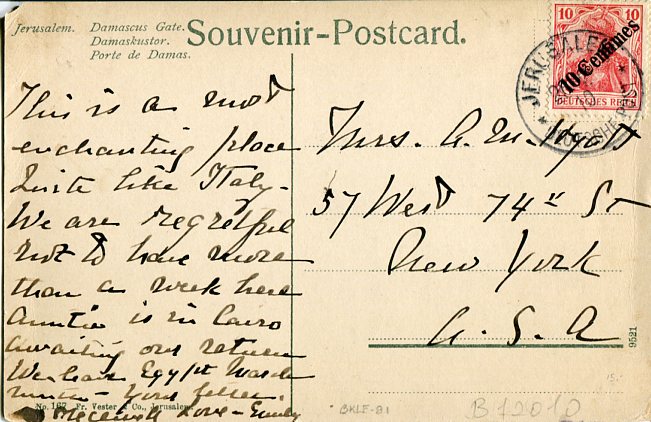 Jerusalem. Damascus Gate.
Damaskustor.
Porte de Damas.
Souvenir-Postcard.
10 10
10 Centimes
DEUTSCHES REICH
JERUSALEM
This is a most
enchanting place
Quite like Italy-
We are regretful
not to have more
than a week here
Auntie is in Cairo
awaiting our return
We have Egypt
your letter
received Love - Emily
Mrs. A. M. Hyatt
57 West 74" St
New York
U. S. A
9521
No. 167 Fr. Vester & Co., Jerusalem.
BKLF-81
B72010